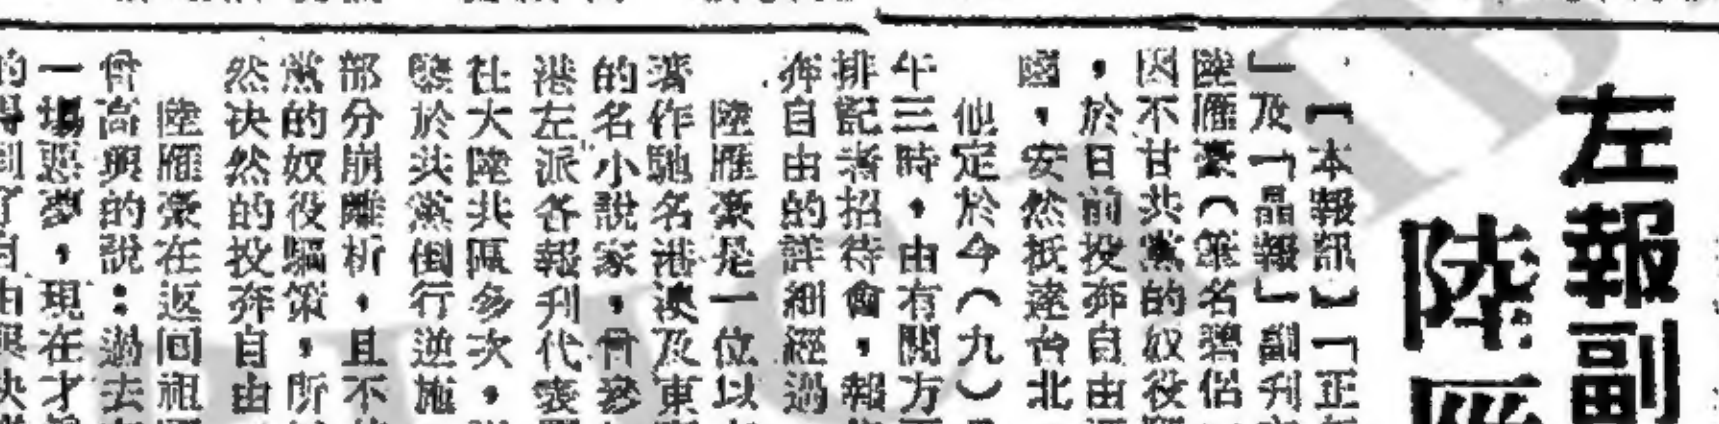 左報副
陸
【本報訊】「正
」及「晶報」副刊
陸雁豪（筆名碧侶
因不甘共黨的奴役
，於日前投奔自由
國，安然抵達台北
他定於今（九）
午三時，由有關方
排記者招待會，報
奔自由的詳細經過
陸雁豪是一位以
著作馳名港澳及東
的名小說家，曾參
港左派各報刊代表
社大陸共區多次，
鑒於共黨倒行逆施
部分崩離析，且不
黨的奴役驅策，所
然决然的投奔自由
陸雁豪在返回祖國
曾高興的說：過去
一場惡夢，現在才
的得到了自由與